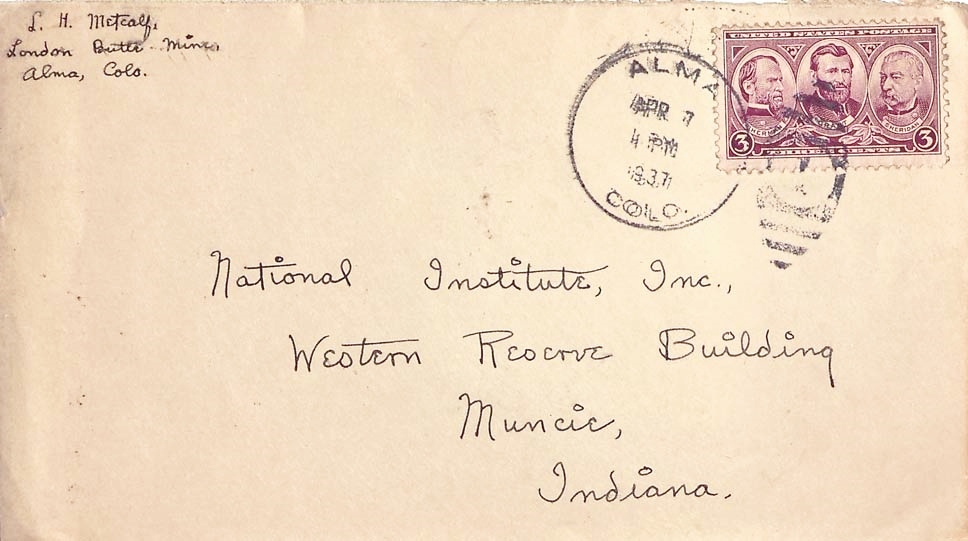 L. H. Metcalf,
London Butte Mine,
Alma, Colo.
ALMA
APR 7
4 PM
1937
COLO.
UNITED STATES POSTAGE
SHERMAN GRANT SHERIDAN
3 THREE CENTS 3
National Institute, Inc.,
Western Reserve Building
Muncie,
Indiana.